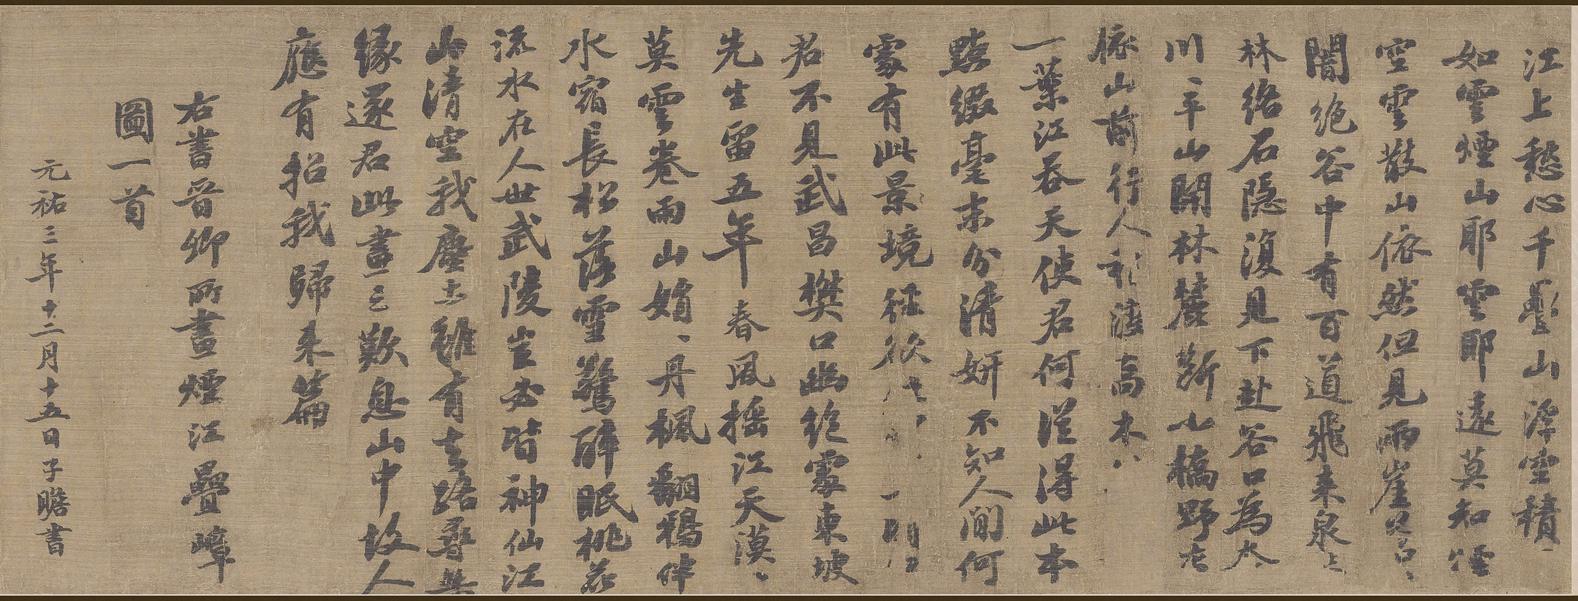 江上愁心千疊山浮空積
如雲煙山耶雲耶遠莫知煙
空雲散山依然但見兩崖
闇絕谷中有百道飛來泉
林絡石隱復見下赴谷口為
川平山開林麓斷小橋野店
依山前行人稍度高木
一葉江吞天使君何從得此本
點綴毫末分清妍不知人間何
處有此景境徑欲
君不見武昌樊口幽絕處東坡
先生留五年春風搖江天漠、
莫雲卷雨山娟、丹楓翻鴉伴
水宿長松落雪驚醉眠桃花
流水在人世武陵豈必皆神仙江
山清空我塵土雖有去路尋無
緣還君此畫三歎息山中故人
應有招我歸來篇
右書晉卿所畫煙江疊嶂
圖一首
元祐三年十二月十五日子瞻書